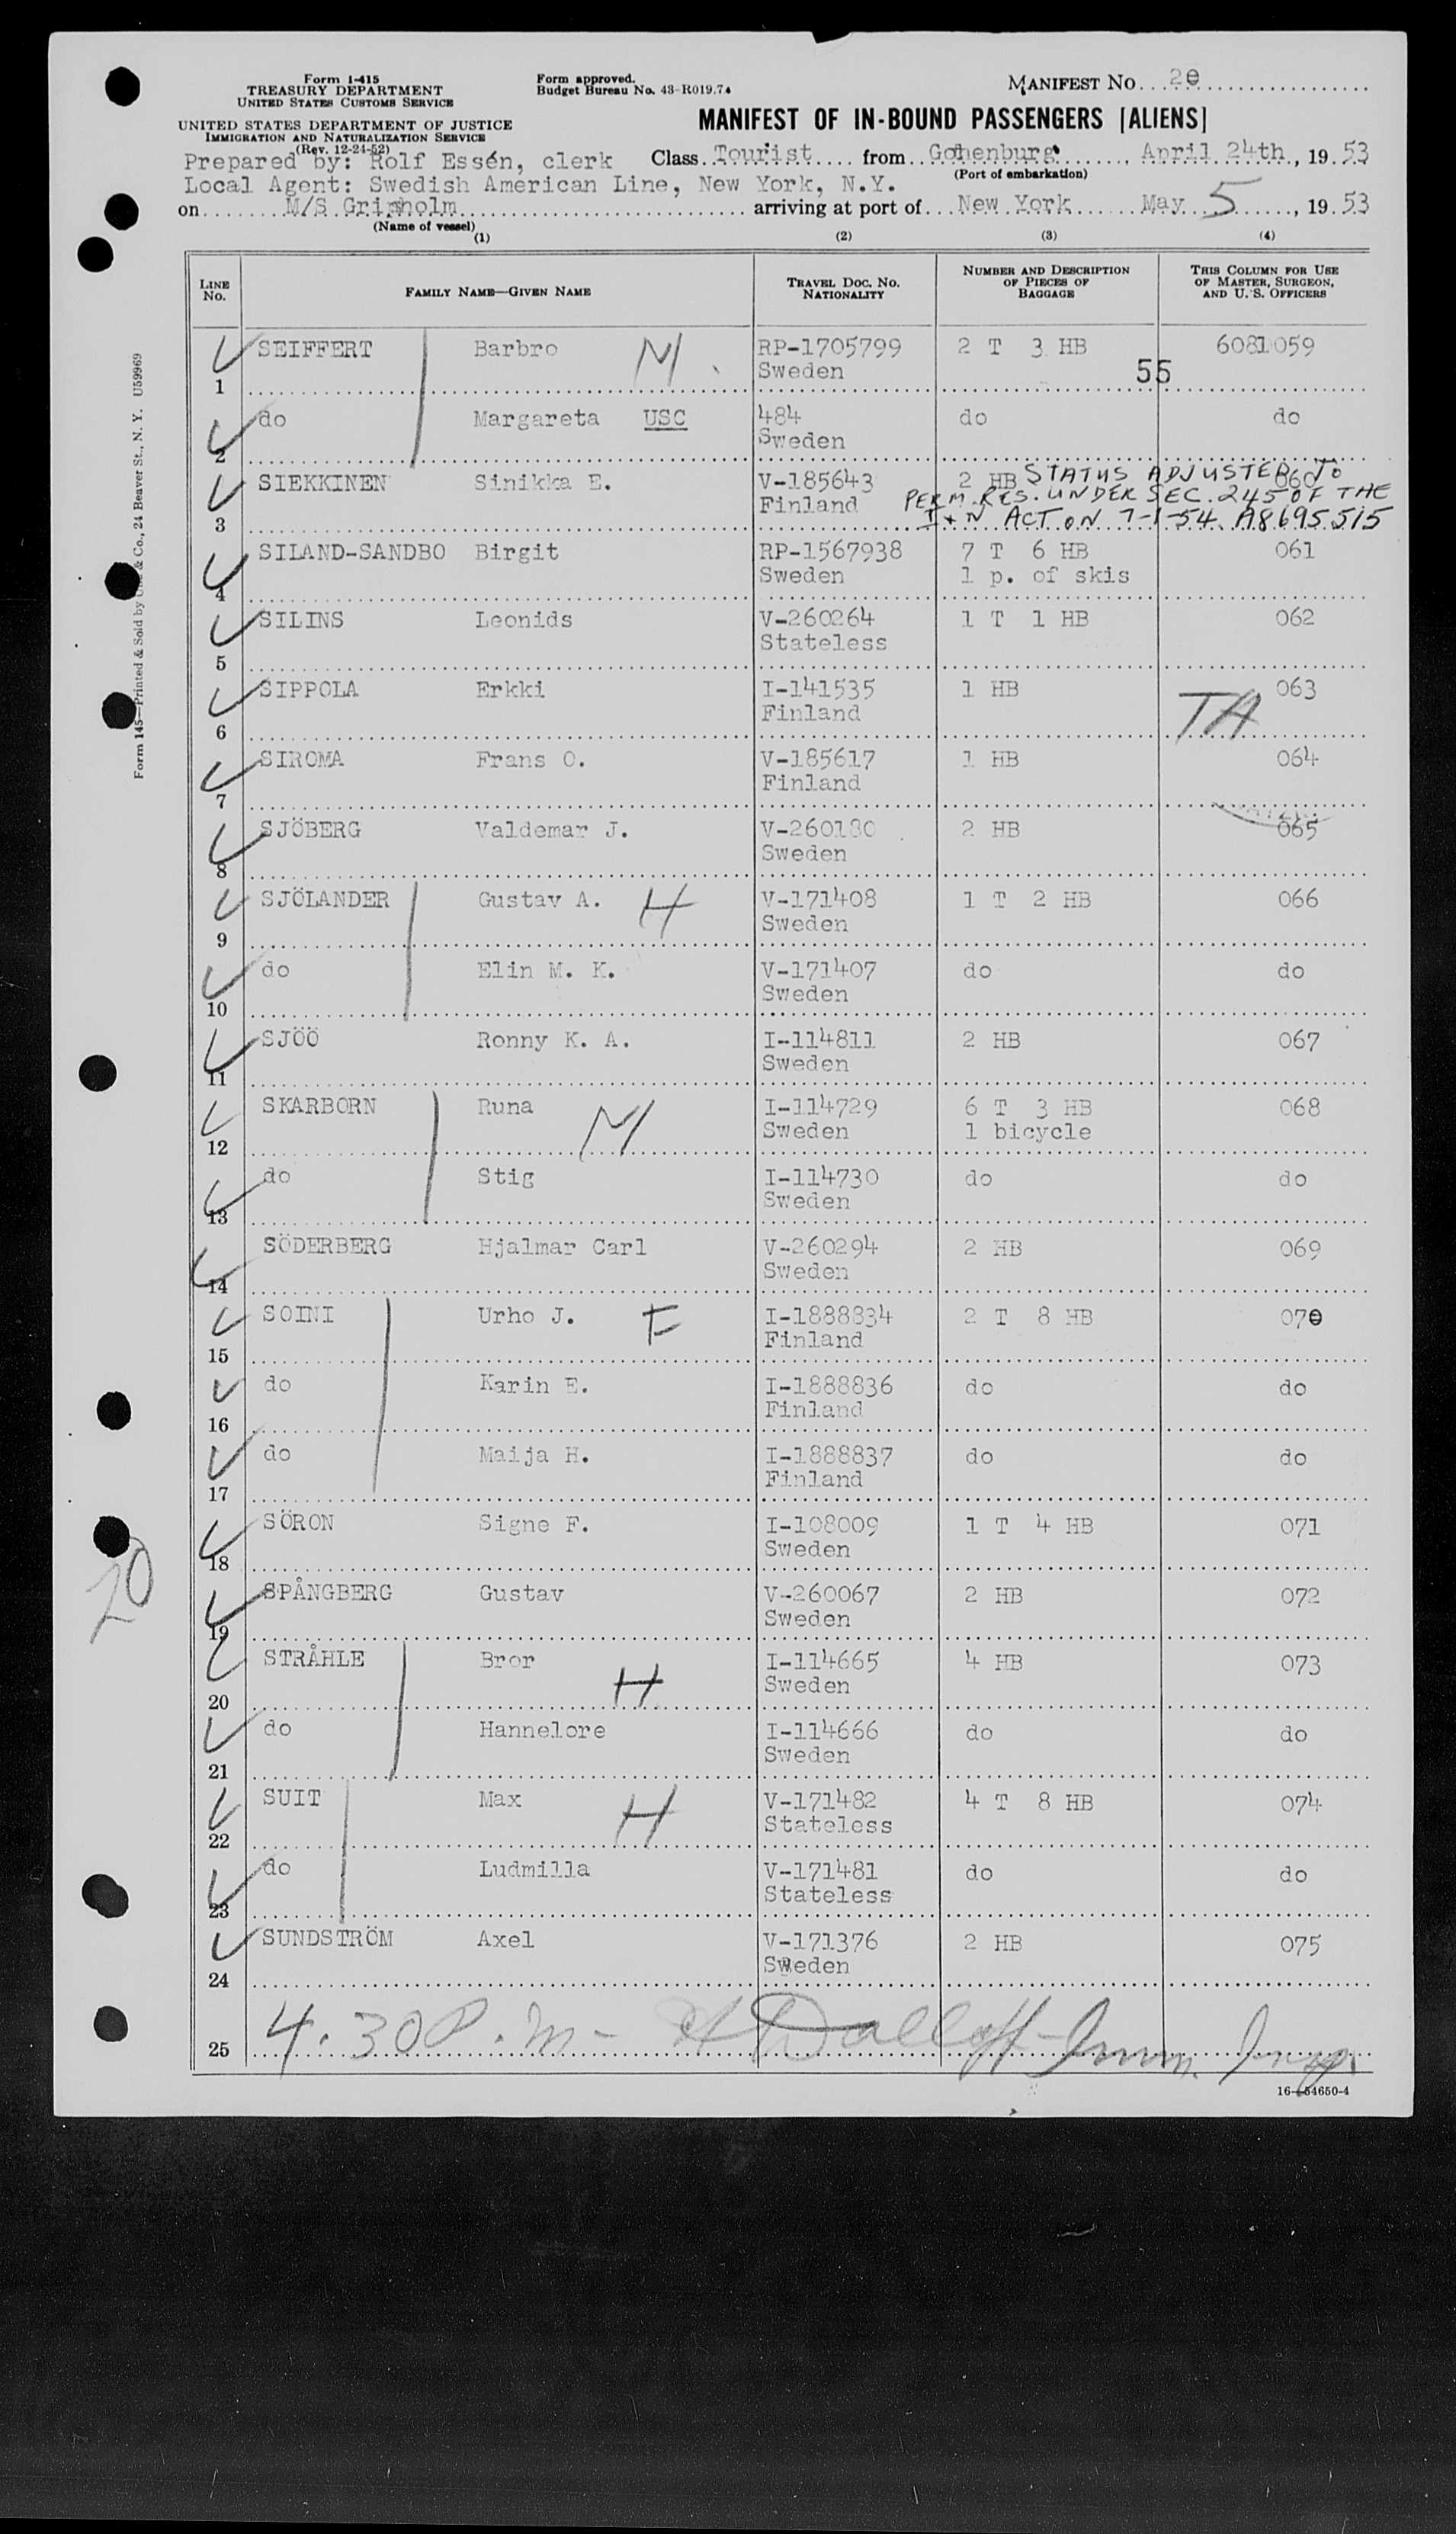 Form 1-415
TREASURY DEPARTMENT
UNITED STATES CUSTOMS SERVICE
UNITED STATES DEPARTMENT OF JUSTICE
IMMIGRATION AND NATURALIZATION SERVICE
(Rev. 12-24-52)
Form approved.
Budget Bureau No. 43-R019.74
MANIFEST NO. 20
MANIFEST OF IN-BOUND PASSENGERS [ALIENS]
Prepared by: Rolf Essén, clerk Class Tourist from Gothenburg April 24th, 1953
(Port of embarkation)
Local Agent: Swedish American Line, New York, N.Y.
on M/S Gripsholm arriving at port of New York May 5, 1953
(Name of vessel)
(1) (2) (3) (4)
LINE No. FAMILY NAME—GIVEN NAME TRAVEL DOC. NO. NATIONALITY NUMBER AND DESCRIPTION OF PIECES OF BAGGAGE THIS COLUMN FOR USE OF MASTER, SURGEON, AND U. S. OFFICERS
SEIFFERT Barbro M RP-1705799 2 T 3 HB 6081059
1 Sweden 55
do Margareta USC 484 do do
2 Sweden
SIEKKINEN Sinikka E. V-185643 2 HB STATUS ADJUSTED TO 060
Finland PERM. RES. UNDER SEC. 245 OF THE
3 I + N ACT ON 7-1-54 A8695515
SILAND-SANDBO Birgit RP-1567938 7 T 6 HB 061
4 Sweden 1 p. of skis
SILINS Leonids V-260264 1 T 1 HB 062
5 Stateless
SIPPOLA Erkki I-141535 1 HB 063
6 Finland TA
SIROMA Frans O. V-185617 1 HB 064
7 Finland
SJÖBERG Valdemar J. V-260180 2 HB 065
8 Sweden
SJÖLANDER Gustav A. H V-171408 1 T 2 HB 066
9 Sweden
do Elin M. K. V-171407 do do
10 Sweden
SJÖÖ Ronny K. A. I-114811 2 HB 067
11 Sweden
SKARBORN Runa M I-114729 6 T 3 HB 068
12 Sweden 1 bicycle
do Stig I-114730 do do
13 Sweden
SÖDERBERG Hjalmar Carl V-260294 2 HB 069
14 Sweden
SOINI Urho J. F I-1888834 2 T 8 HB 070
15 Finland
do Karin E. I-1888836 do do
16 Finland
do Maija H. I-1888837 do do
17 Finland
SÖRON Signe F. I-108009 1 T 4 HB 071
18 Sweden
SPÅNGBERG Gustav V-260067 2 HB 072
19 Sweden
STRÅHLE Bror H I-114665 4 HB 073
20 Sweden
do Hannelore I-114666 do do
21 Sweden
SUIT Max H V-171482 4 T 8 HB 074
22 Stateless
do Ludmilla V-171481 do do
23 Stateless
SUNDSTRÖM Axel V-171376 2 HB 075
24 Sweden
25 4.30 P.m - Imm. Insp.
16—54650-4
Form 145—Printed & Sold by & Co., 24 Beaver St., N. Y. U59969
20